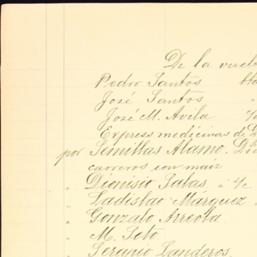 De la vuelta
Pedro Santos
José Santos
José M. Avila
Express medicinas de
por Semillas Alamo.
carreros con maiz
" Dionisio Salas á %c
" Ladislao Márquez
" Gonzalo Arreola
" M. Soto
" Serapio Landeros